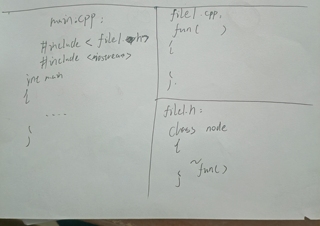 main.cpp:
#include < file1.h>
#include <iostream>
int main
{
....
}
file1.cpp.
fun( )
{
}.
file1.h:
class node
{
~fun()
}